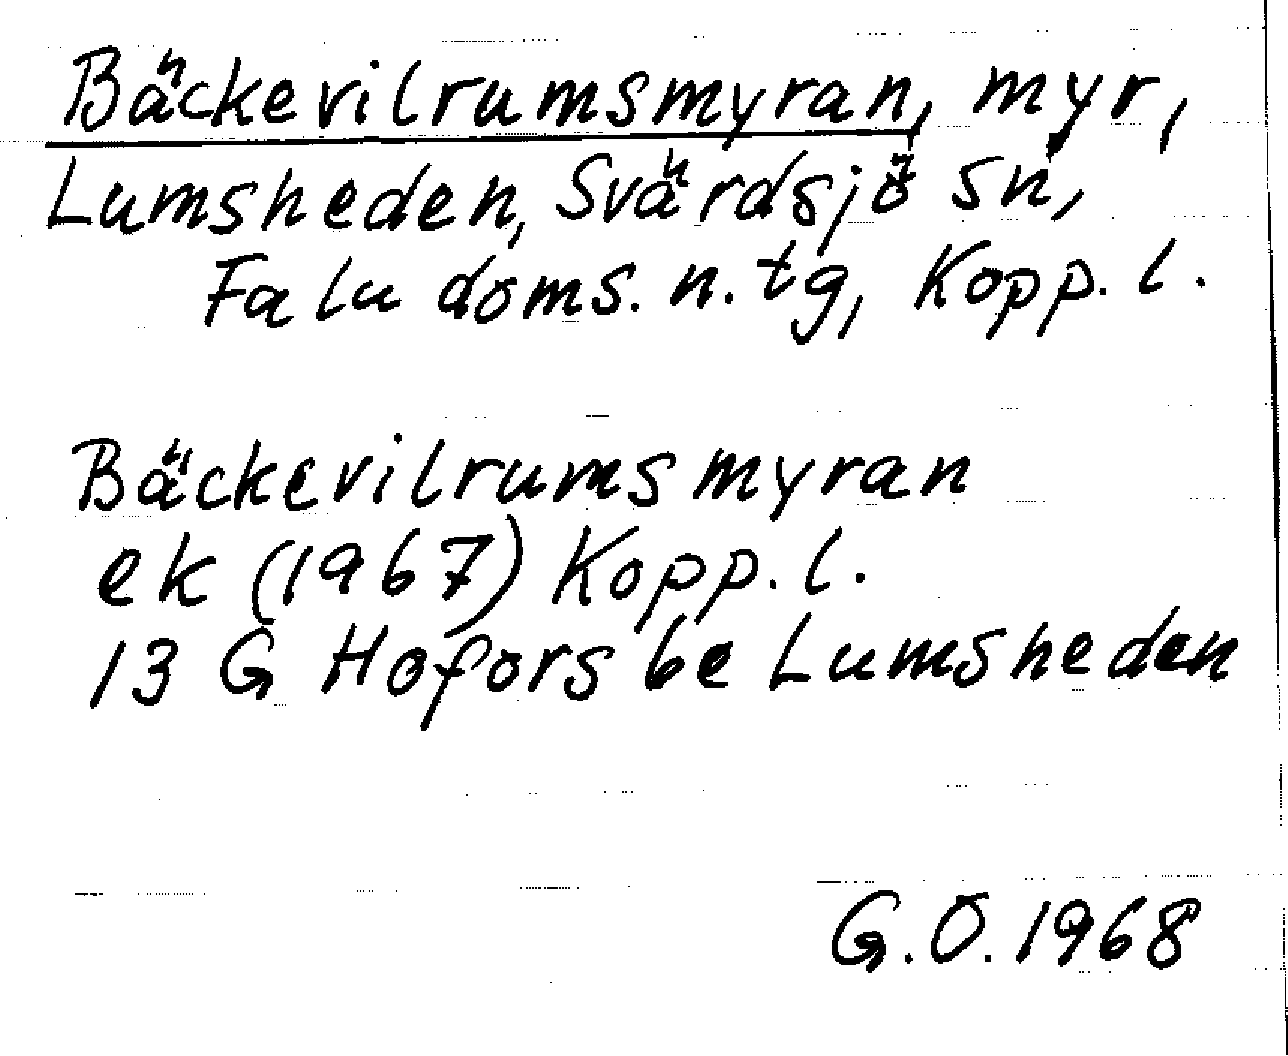 Bäckevilrumsmyran, myr,
Lumsheden, Svärdsjö sn,
Falu doms. n. tg, Kopp. l.
Bäckevilrumsmyran
ek (1967) Kopp. l.
13 G Hofors be Lumsheden
G.O. 1968